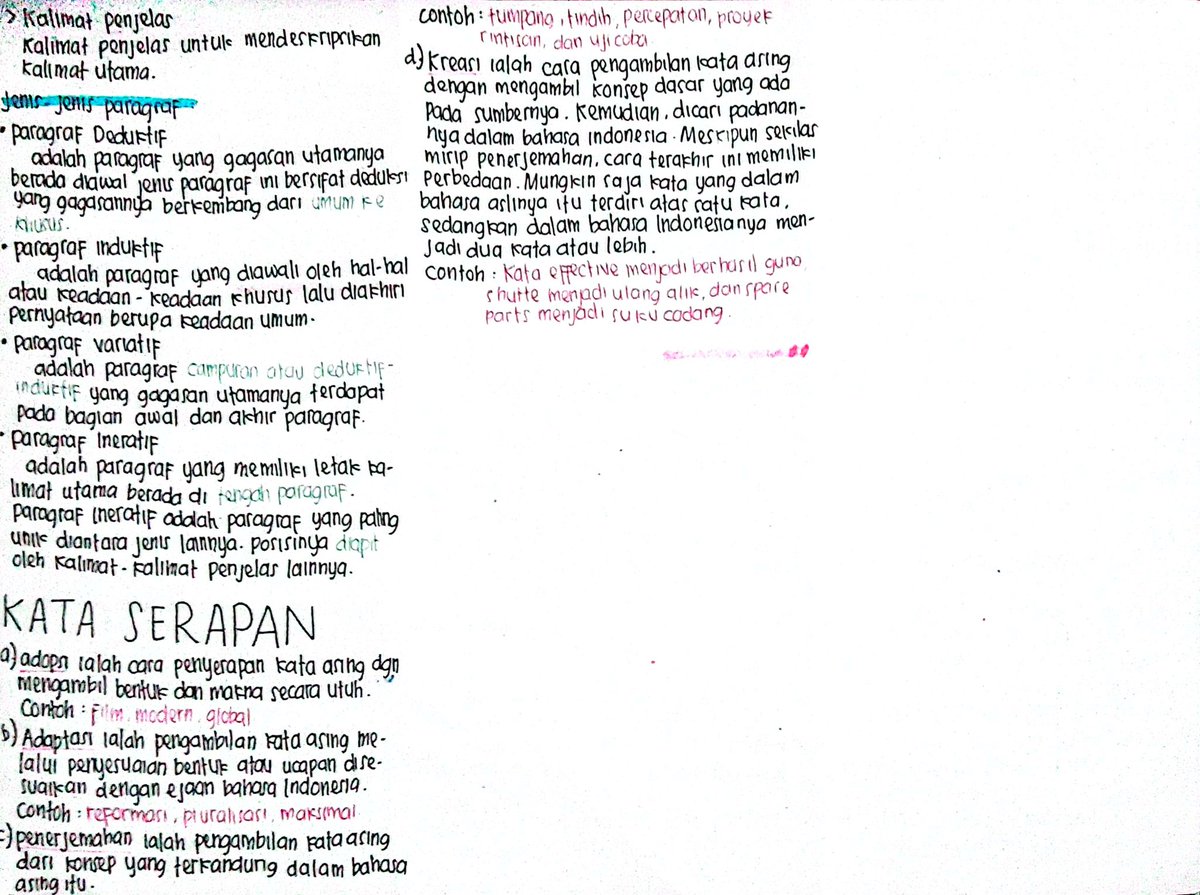 > Kalimat penjelas
Kalimat penjelas untuk mendeskripsikan
kalimat utama.
Jenis-jenis paragraf
• paragraf Deduktif
adalah paragraf yang gagasan utamanya
berada diawal jenis paragraf ini bersifat deduksi
yang gagasannya berkembang dari umum ke
khusus.
• paragraf induktif
adalah paragraf yang diawali oleh hal-hal
atau keadaan-keadaan khusus lalu diakhiri
pernyataan berupa keadaan umum.
• paragraf variatif
adalah paragraf campuran atau deduktif-
induktif yang gagasan utamanya terdapat
pada bagian awal dan akhir paragraf.
• paragraf ineratif
adalah paragraf yang memiliki letak ka-
limat utama berada di tengah paragraf.
paragraf ineratif adalah paragraf yang paling
unik diantara jenis lainnya. posisinya diapit
oleh kalimat-kalimat penjelas lainnya.
KATA SERAPAN
a) adopsi ialah cara penyerapan kata asing dgn
mengambil bentuk dan makna secara utuh.
Contoh : film, modern, global
b) Adaptasi ialah pengambilan kata asing me-
lalui penyesuaian bentuk atau ucapan dise-
suaikan dengan ejaan bahasa Indonesia.
Contoh : reformasi, pluralisasi, maksimal
c) penerjemahan ialah pengambilan kata asing
dari konsep yang terkandung dalam bahasa
asing itu.
contoh : tumpang, tindih, percepatan, proyek
rintisan, dan uji coba
d) Kreasi ialah cara pengambilan kata asing
dengan mengambil konsep dasar yang ada
pada sumbernya. Kemudian, dicari padanan-
nya dalam bahasa indonesia. Meskipun sekilas
mirip penerjemahan, cara terakhir ini memiliki
perbedaan. Mungkin saja kata yang dalam
bahasa aslinya itu terdiri atas satu kata,
sedangkan dalam bahasa Indonesianya men-
jadi dua kata atau lebih.
contoh : Kata effective menjadi berhasil guna,
shutte menjadi ulang alik, dan spare
parts menjadi suku cadang.